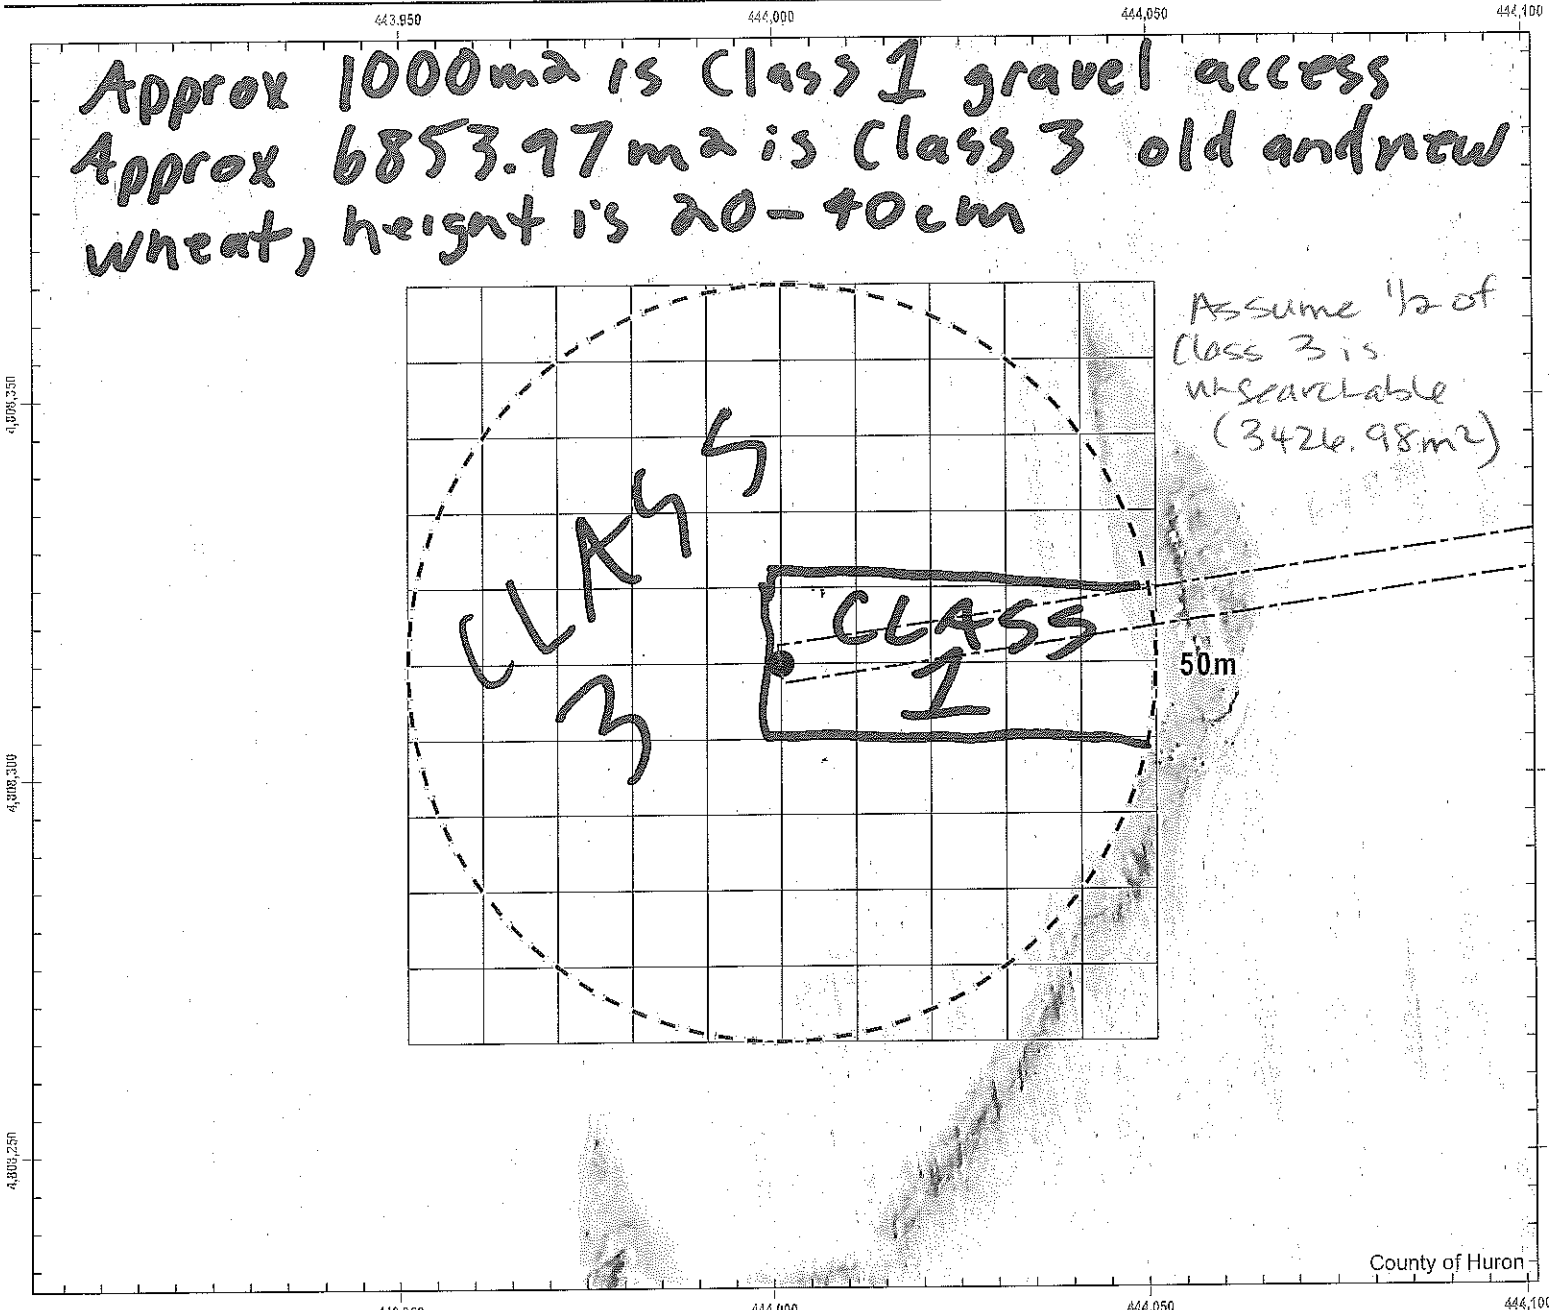 443,950 444,000 444,050 444,100
Approx 1000m2 is Class 1 gravel access
Approx 6853.97m2 is Class 3 old and new
wheat, height is 20-40cm
Assume 1/2 of
Class 3 is
unsearchable
(3426.98m2)
4,808,350
CLASS
3
CLASS
1
50m
4,808,300
4,808,250
County of Huron
444,000 444,050 444,100